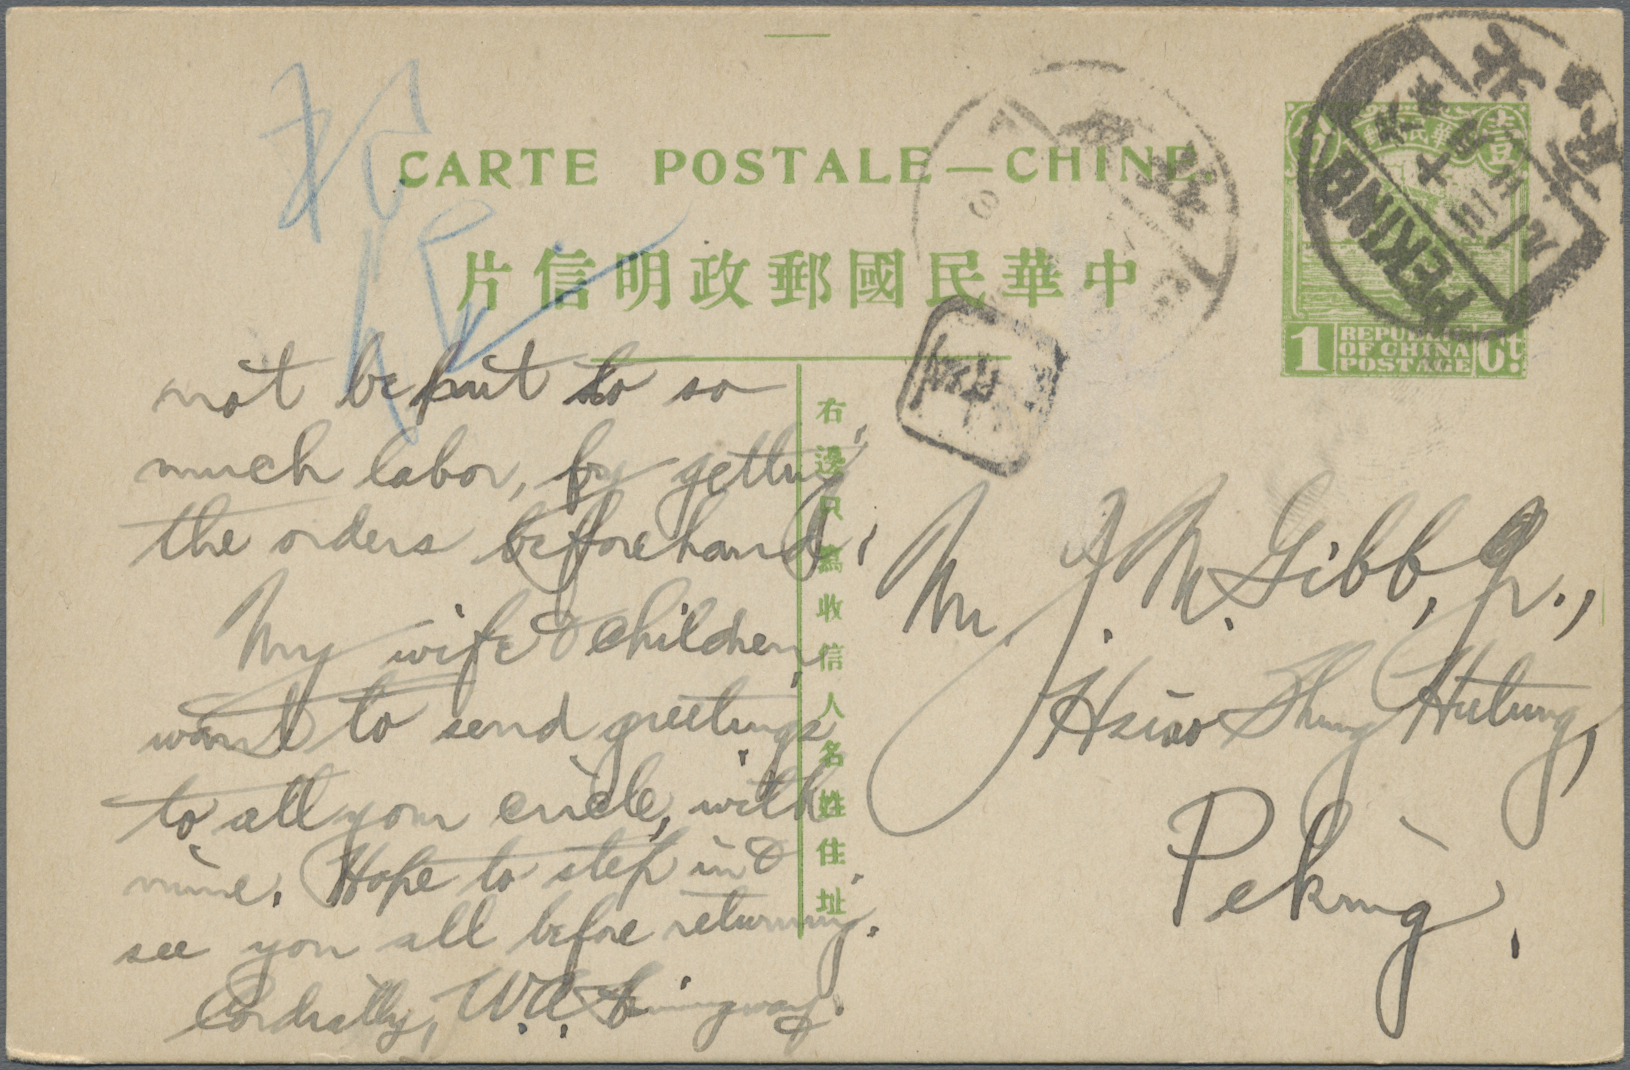 CARTE POSTALE — CHINE
片信明政郵國民華中
PEKING
1 REPUBLIC OF CHINA POSTAGE Ct.
右邊只爲收信人名姓住址
not be put to so
much labor, by getting
the orders beforehand.
My wife & children
want to send greetings
to all your circle, with
mine. Hope to step in &
see you all before returning.
Cordially, W.A. Hemingway.
Mr. J. M. Gibb, Jr.,
Hsiao Shung Hutung,
Peking,